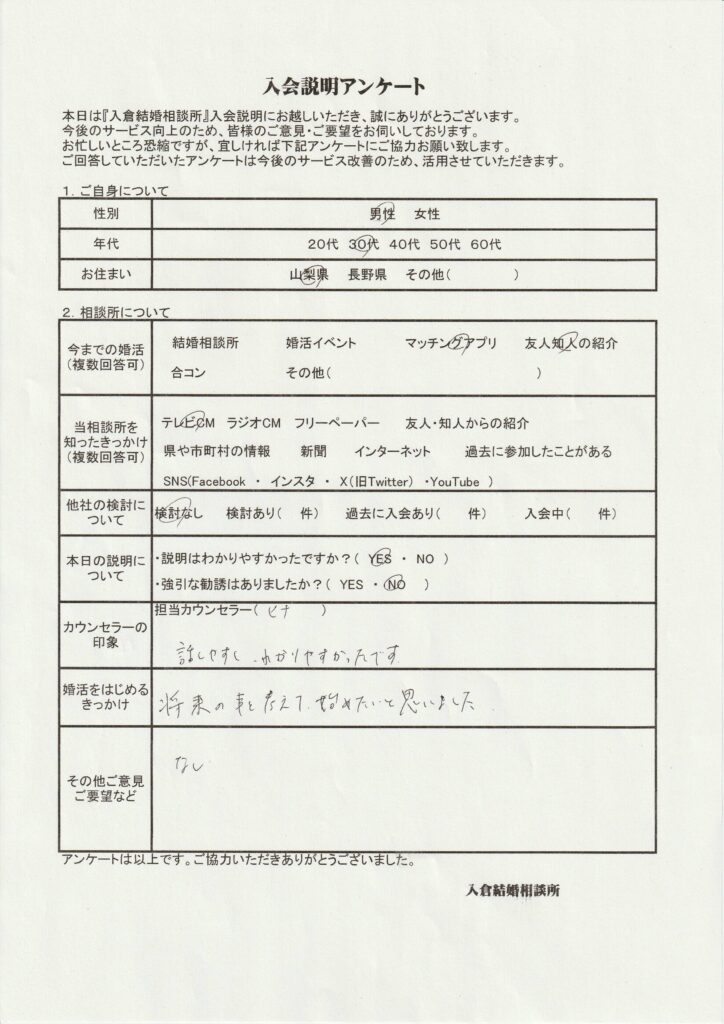 入会説明アンケート
本日は『入倉結婚相談所』入会説明にお越しいただき、誠にありがとうございます。
今後のサービス向上のため、皆様のご意見・ご要望をお伺いしております。
お忙しいところ恐縮ですが、宜しければ下記アンケートにご協力お願い致します。
ご回答していただいたアンケートは今後のサービス改善のため、活用させていただきます。
1. ご自身について
性別 男性 女性
年代 20代 30代 40代 50代 60代
お住まい 山梨県 長野県 その他( )
2. 相談所について
今までの婚活
(複数回答可)
結婚相談所 婚活イベント マッチングアプリ 友人知人の紹介
合コン その他( )
当相談所を
知ったきっかけ
(複数回答可)
テレビCM ラジオCM フリーペーパー 友人・知人からの紹介
県や市町村の情報 新聞 インターネット 過去に参加したことがある
SNS(Facebook ・ インスタ ・ X(旧Twitter) ・YouTube )
他社の検討に
ついて
検討なし 検討あり( 件) 過去に入会あり( 件) 入会中( 件)
本日の説明に
ついて
・説明はわかりやすかったですか?( YES ・ NO )
・強引な勧誘はありましたか?( YES ・ NO )
カウンセラーの
印象
担当カウンセラー( ヒナ )
話しやすく、わかりやすかったです
婚活をはじめる
きっかけ
将来の事を考えて、始めたいと思いました。
その他ご意見
ご要望など
なし
アンケートは以上です。ご協力いただきありがとうございました。
入倉結婚相談所